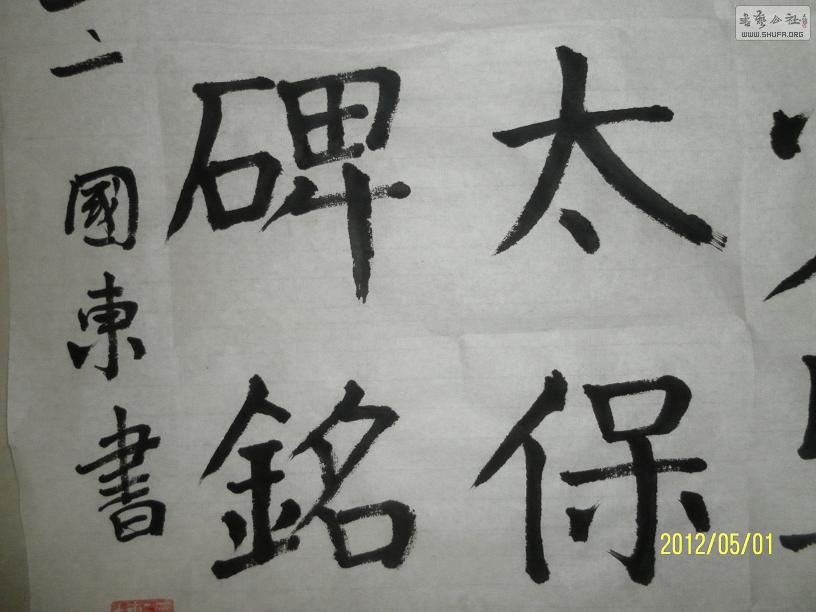 太保
碑銘
國東書
书艺公社
WWW.SHUFA.ORG
2012/05/01